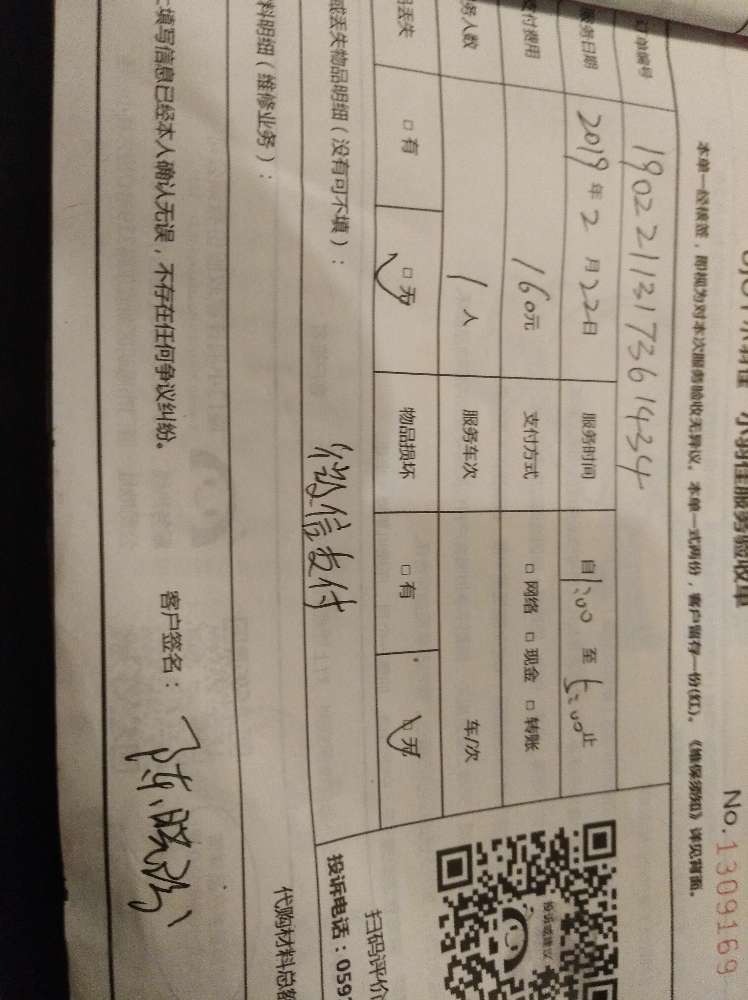 小羽佳服务验收单
No.1309169
本单一经接签，即视为对本次服务验收无异议。本单一式两份，客户留存一份(红)。《维保须知》详见背面。
订单编号 1902211317361434
服务日期 2019年2月22日 服务时间 自1:00 至 5:00止
支付费用 160元 支付方式 □ 网络 □ 现金 □ 转账
务人数 1人 服务车次 车/次
丢失 □ 有 □ 无 物品损坏 □ 有 □ 无
或丢失物品明细（没有可不填）：
微信支付
料明细（维修业务）：
填写信息已经本人确认无误，不存在任何争议纠纷。
客户签名：
投诉或建议
扫码评价
投诉电话：059
代购材料总